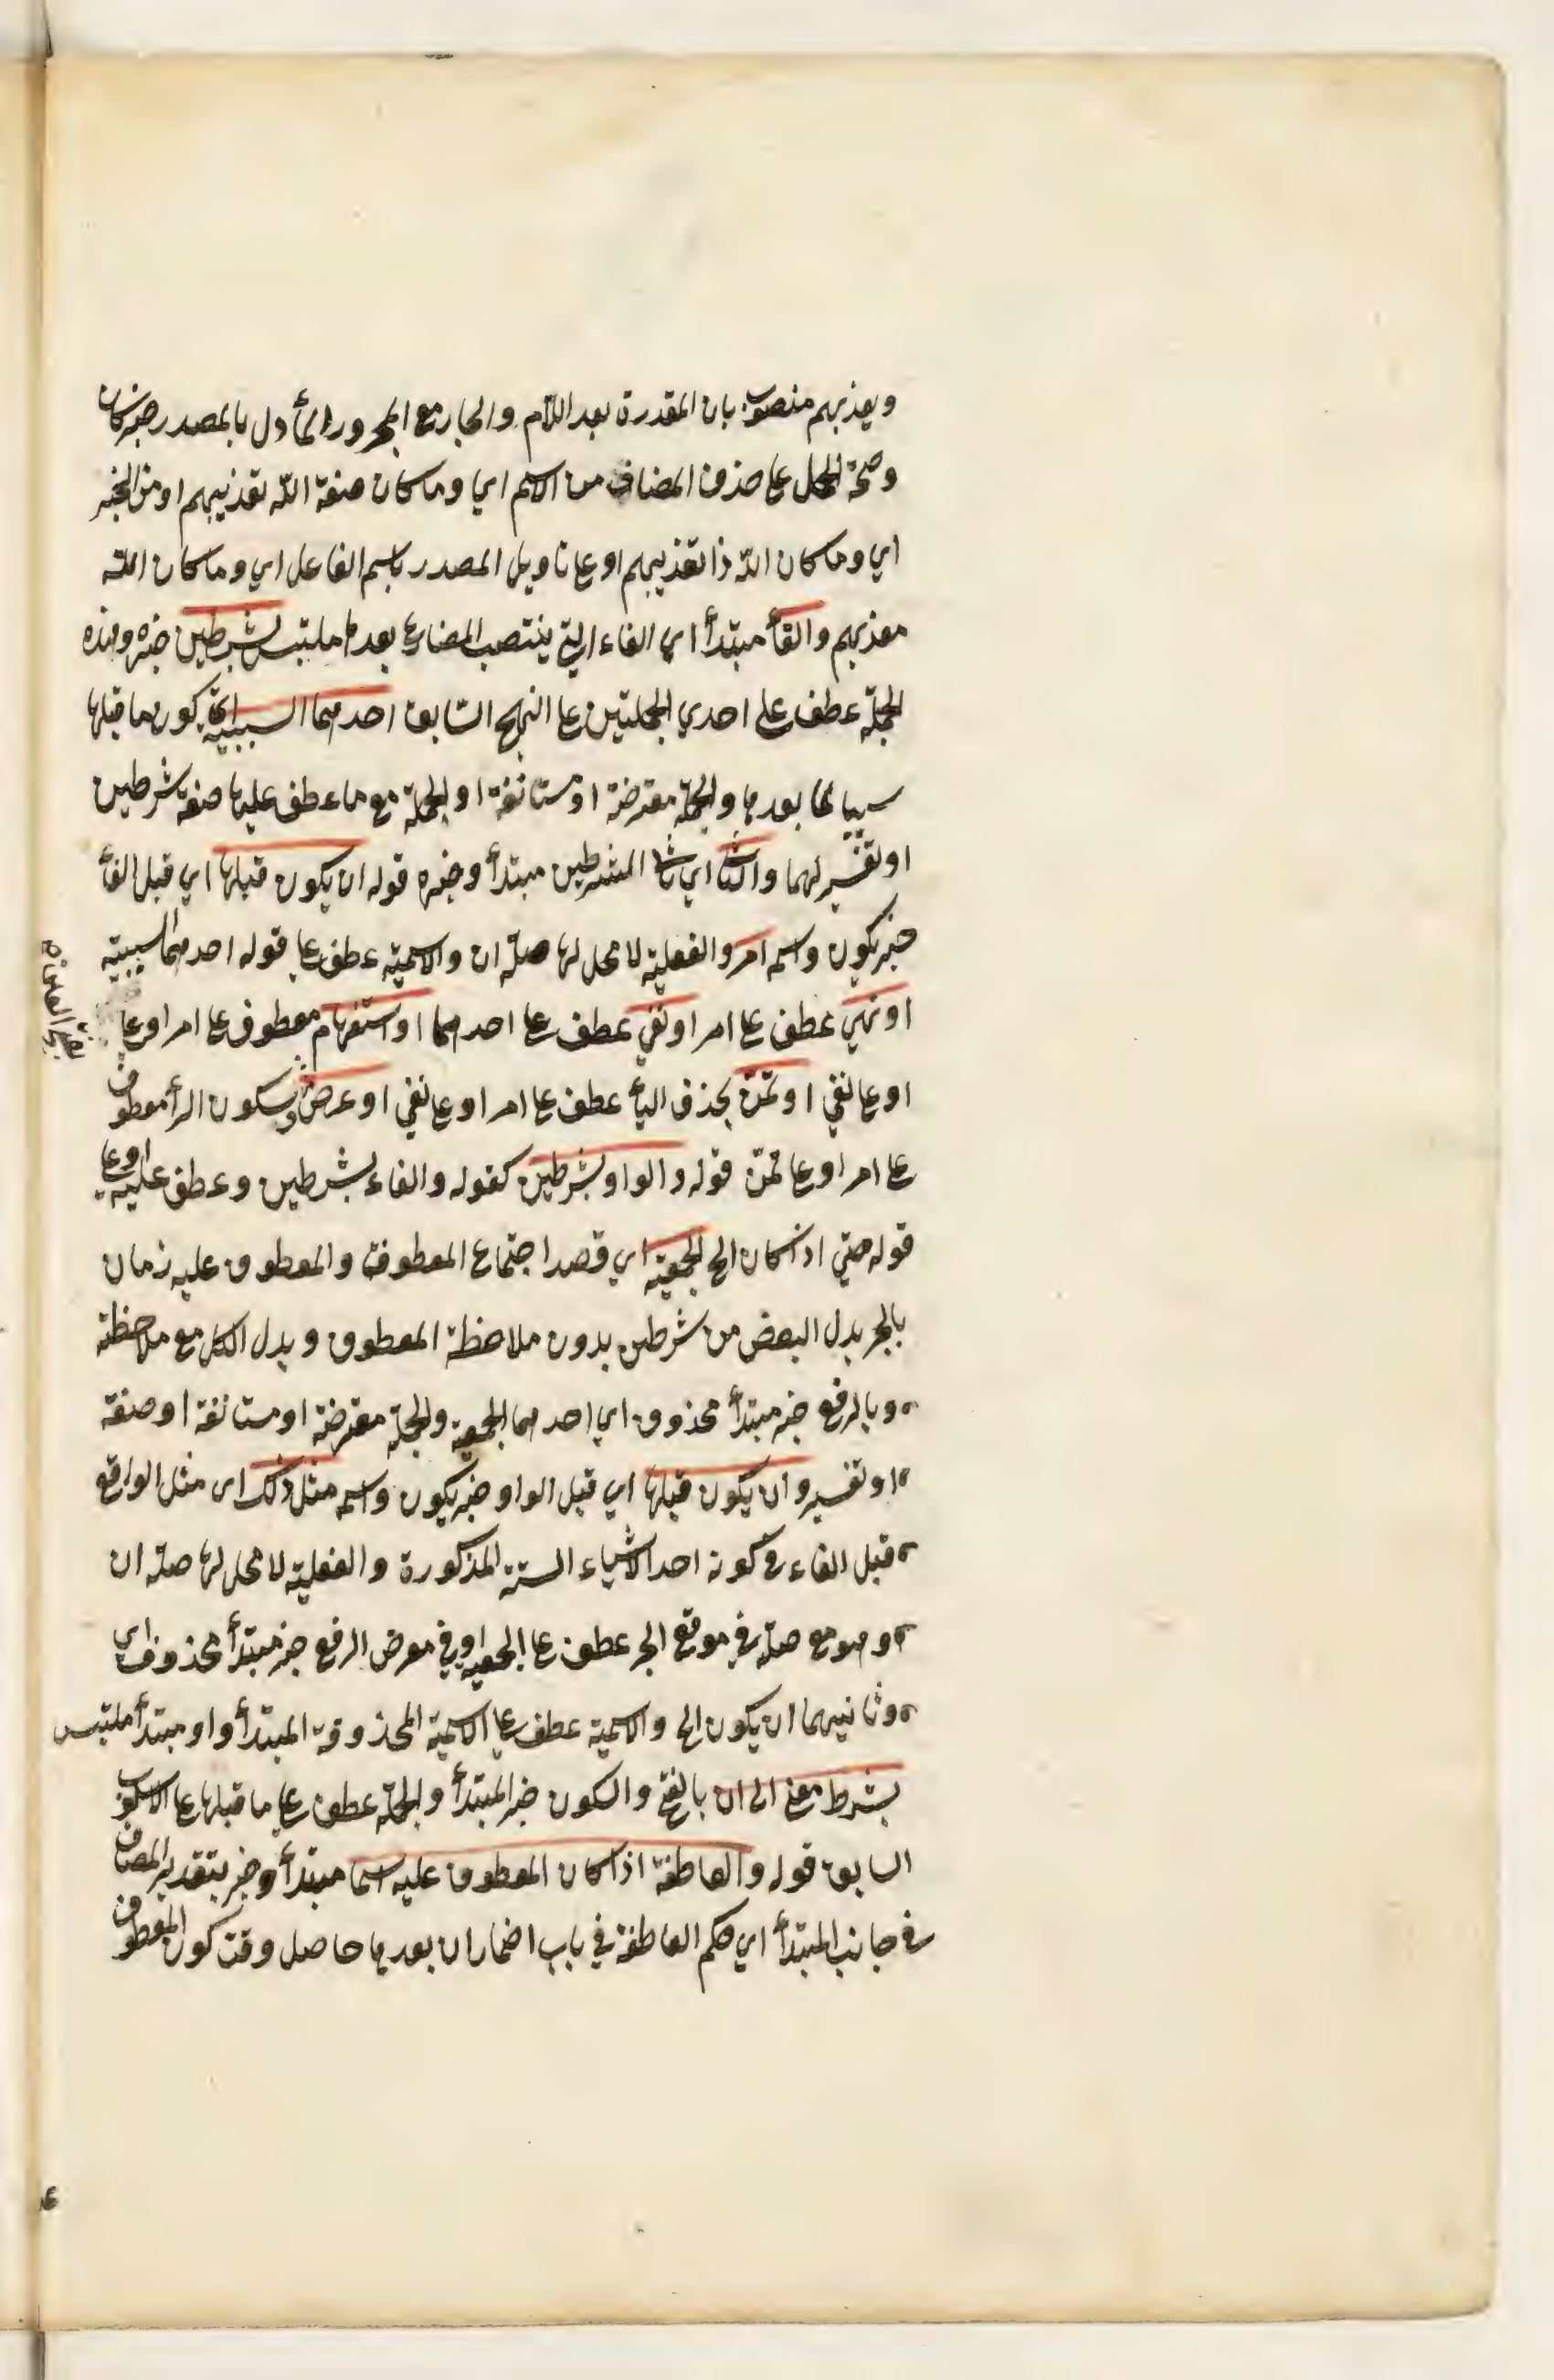 ويعذبهم منصوب بان المقدرة بعد اللام والجار مع المجرور المأول بالمصدر خبر كان
وصحة الحمل على حذف المضاف من الاسم اي وما كان صفة الله تعذيبهم او من الخبر
اي وما كان الله ذا تعذيبهم او على تاويل المصدر باسم الفاعل اي وما كان الله
معذبهم والفأ مبتدأ اي الفاء التي ينتصب المضارع بعدها ملتبس بشرطين خبره وهذه
الجملة عطف على احدي الجملتين على النهج السابق احدهما السببية اي كون ما قبلها
سببا لما بعدها والجملة معترضة او مستانفة او الجملة مع ما عطف عليها صفة شرطين
او تفسير لهما والثاني اي ثاني الشرطين مبتدأ وخبره قوله ان يكون قبلها اي قبل الفأ
خبر يكون واسمه امر والفعلية لا محل لها صلة ان والاسمية عطف على قوله احدهما السببية
او نهي عطف على امر او نفي عطف على احدهما او استفهام معطوف على امر او على
او على نفي او تمن بحذف اليأ عطف على امر او على نفي او عرض وبسكون الرأ معطوف
على امر او على تمن قوله والواو بشرطين كقوله والفاء بشرطين وعطف عليه او على
قوله حتي اذا كان الخ الجمعية اي قصد اجتماع المعطوف والمعطوف عليه زمان
بالجر بدل البعض من شرطين بدون ملاحظة المعطوف وبدل الكل مع ملاحظته
وبالرفع خبر مبتدأ محذوف اي احدهما الجمعية والجملة معترضة او مستانفة او صفة
او تفسير وان يكون قبلها اي قبل الواو خبر يكون واسمه مثل ذلك اى مثل الواقع
قبل الفاء في كونه احد الاشياء الستة المذكورة والفعلية لا محل لها صلة ان
وهو مع صلته في موقع الجر عطف على الجمعية او في معرض الرفع خبر مبتدأ محذوف اي
وثانيهما ان يكون الخ والاسمية عطف على الاسمية المحذوفة المبتدأ واو مبتدأ ملتبس
بشرط معنى الى ان بالفتح والسكون خبر المبتدأ والجملة عطف على ما قبلها على الاسلوب
السابق قوله والعاطفة اذا كان المعطوف عليه اسما مبتدأ وخبر بتقدير المضاف
في جانب المبتدأ اي حكم العاطفة في باب اضمار ان بعدها حاصل وقت كون المعطوف